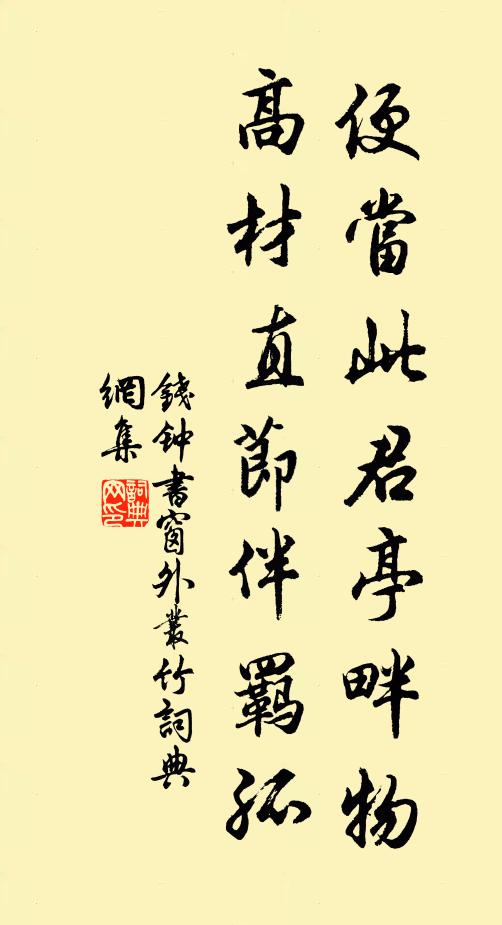 便當此君亭畔物
高材直節伴羈孤
錢钟書窗外叢竹詞典
網集
詞典
网印